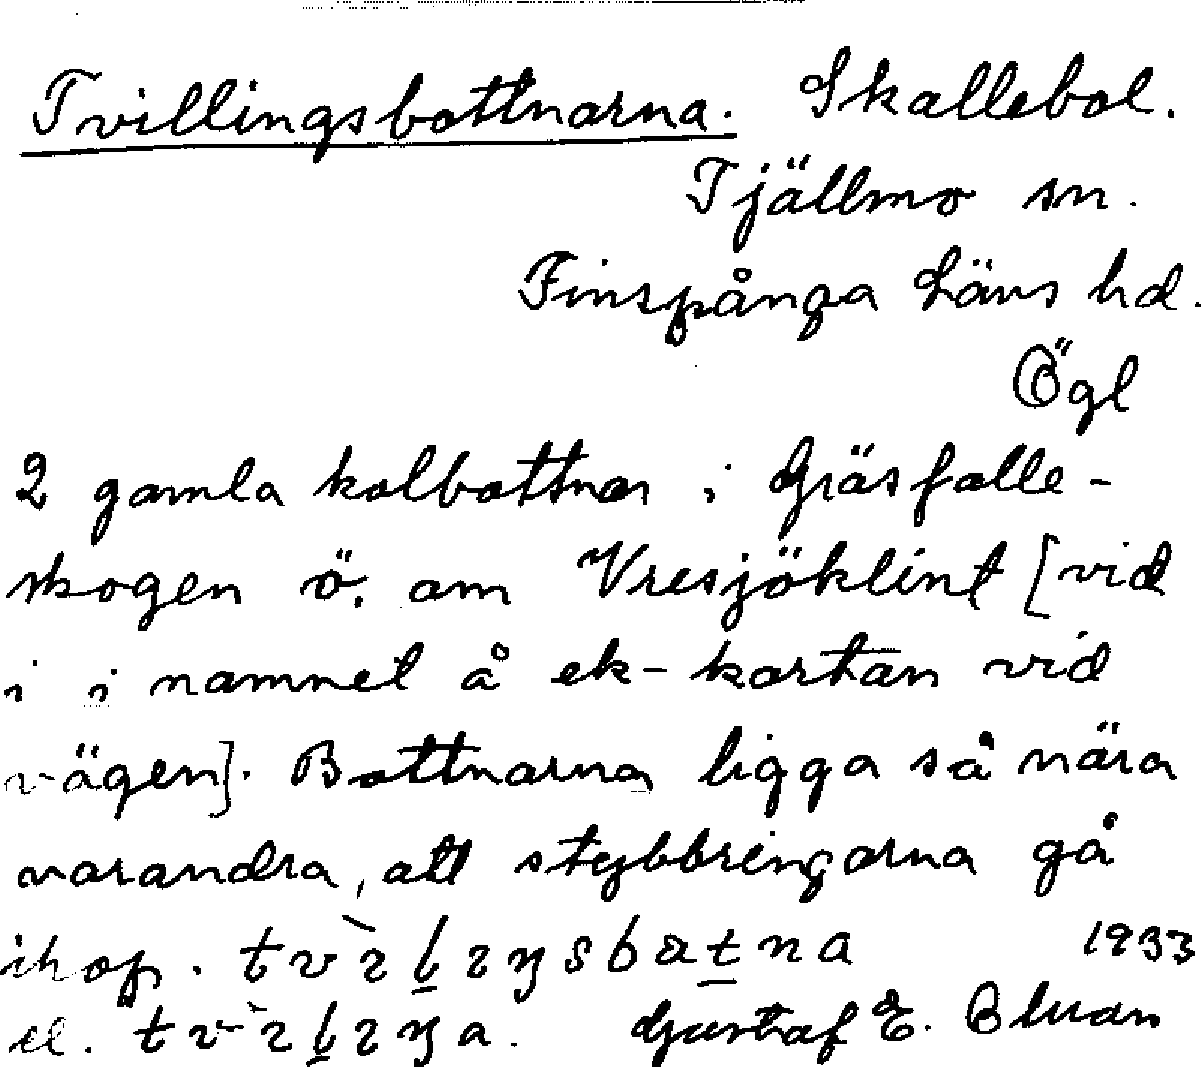 Tvillingsbottnarna. Skallebol.
Tjällmo sn.
Finspånga Läns hd.
Ögl
2 gamla kolbottnar i Gräsfalle-
skogen ö. om Vresjöklint [vid
i i namnet å ek-kartan vid
vägen]. Bottnarna ligga så nära
varandra, att stybbringarna gå
ihop. 1933
el. Gustaf E. Bluan